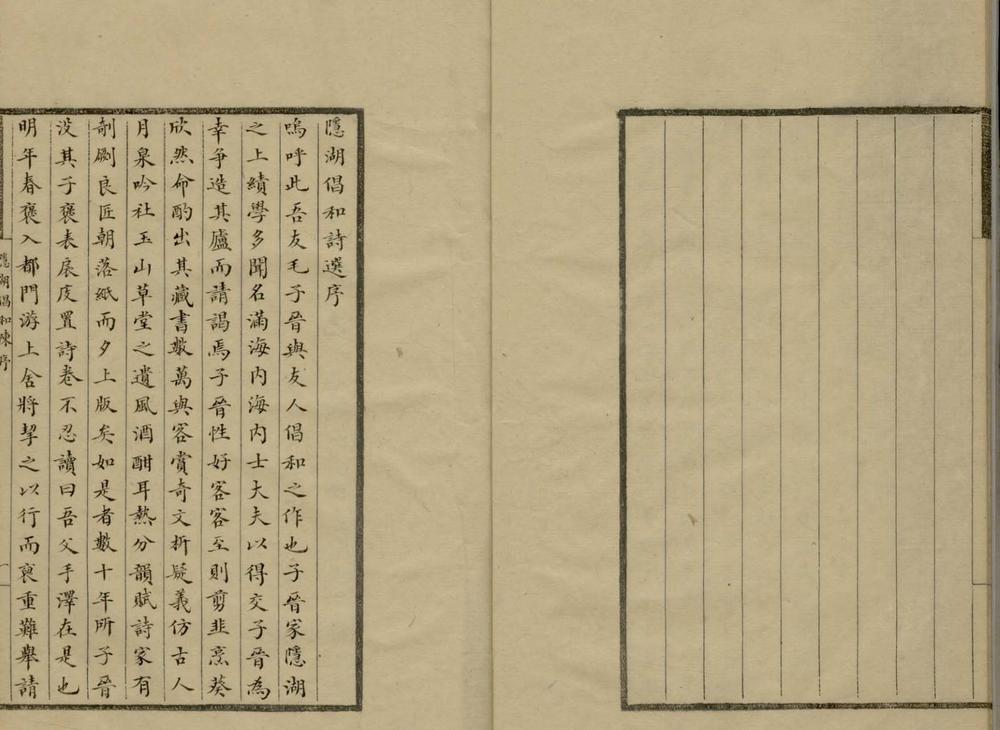 隱湖倡和詩選序
嗚呼此吾友毛子晉與友人倡和之作也子晉家隱湖
之上績學多聞名滿海內海內士大夫以得交子晉為
幸爭造其廬而請謁焉子晉性好客客至則剪韭烹葵
欣然命酌出其藏書數萬與客賞奇文析疑義仿古人
月泉吟社玉山草堂之遺風酒酣耳熱分韻賦詩家有
剞劂良匠朝落紙而夕上版矣如是者數十年所子晉
没其子褒表扆庋置詩卷不忍讀曰吾父手澤在是也
明年春褒入都門游上舍將挈之以行而裒重難舉請
隱湖倡和陳序
一